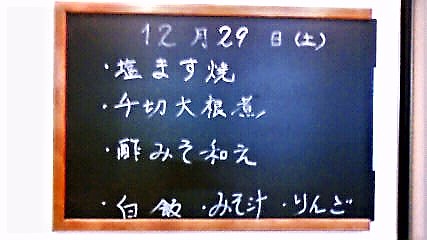 12月29日(土)
・塩ます焼
・千切大根煮
・酢みそ和え
・白飯・みそ汁・りんご